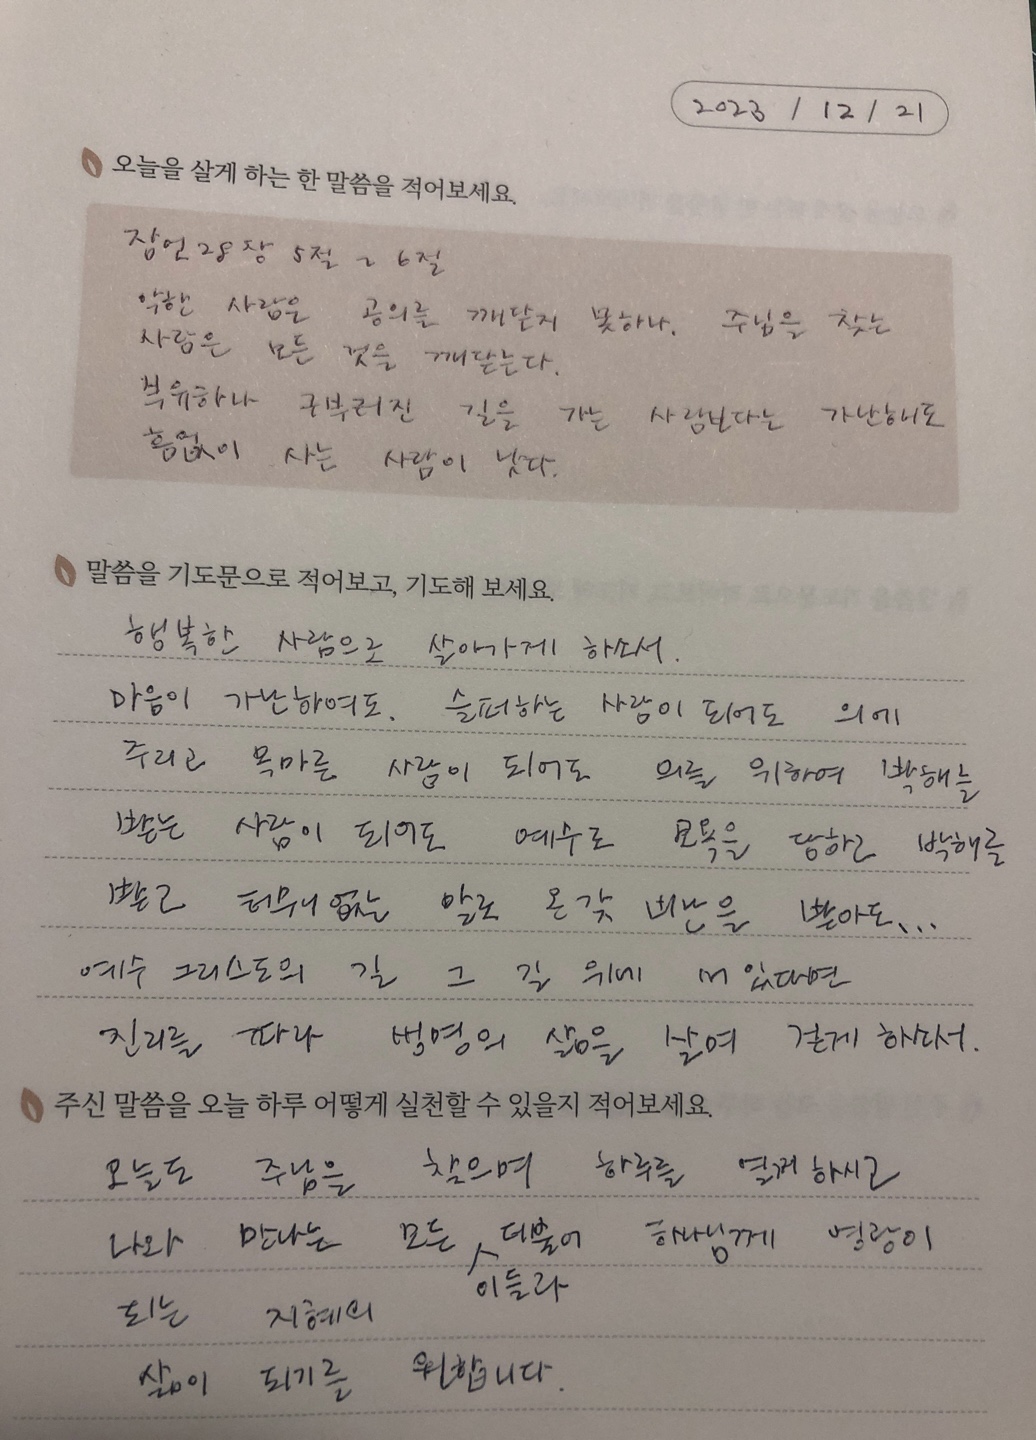 2023 / 12 / 21
오늘을 살게 하는 한 말씀을 적어보세요.
잠언 28장 5절 ~ 6절
악한 사람은 공의를 깨닫지 못하나, 주님을 찾는
사람은 모든 것을 깨닫는다.
부유하나 구부러진 길을 가는 사람보다는 가난해도
흠없이 사는 사람이 낫다.
말씀을 기도문으로 적어보고, 기도해 보세요.
행복한 사람으로 살아가게 하소서.
마음이 가난하여도, 슬퍼하는 사람이 되어도 의에
주리고 목마른 사람이 되어도 의를 위하여 박해를
받는 사람이 되어도 예수로 모욕을 당하고 박해를
받고 터무니 없는 말로 온갖 비난을 받아도...
예수 그리스도의 길 그 길 위에 서 있다면
진리를 따라 생명의 삶을 살며 걷게 하소서.
주신 말씀을 오늘 하루 어떻게 실천할 수 있을지 적어보세요.
오늘도 주님을 찾으며 하루를 열게 하시고
나와 만나는 모든 이들과 더불어 하나님께 영광이
되는 지혜의
삶이 되기를 원합니다.